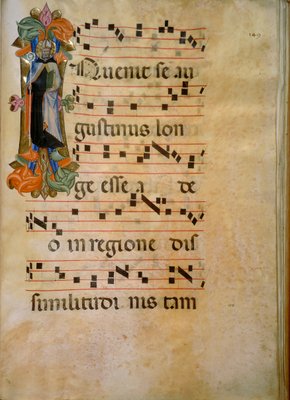 149
INuenit se au
gustinus lon
ge esse a de
o in regione dis
similitudi nis tam